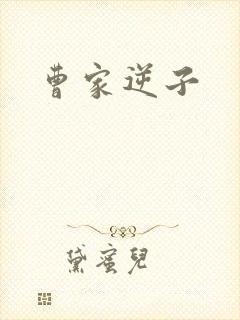 曹家逆子
黛蜜兒